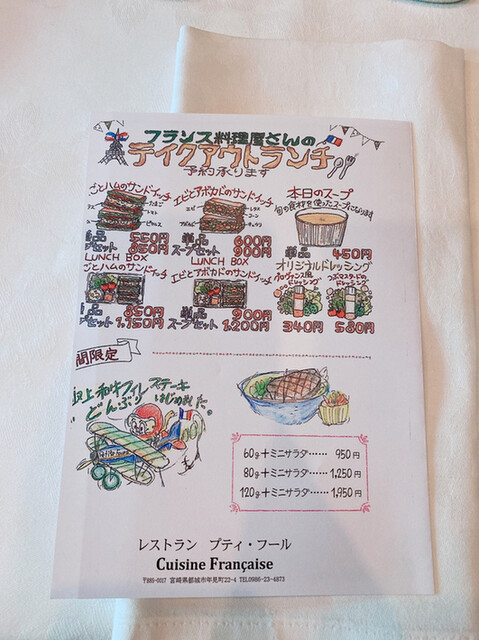 フランス料理屋さんの
テイクアウトランチ
予約承ります
ごとハムのサンドイッチ
エビとアボカドのサンドイッチ
本日のスープ
旬の食材を使ったスープになります
たまご
レタス
コーン
品 550円
プセット 850円
単品 600円
スープセット 900円
単品 450円
LUNCH BOX
ごとハムのサンドイッチ
LUNCH BOX
エビとアボカドのサンドイッチ
オリジナルドレッシング
ドレッシング
つぶマスタードの
ドレッシング
品 850円
プセット 1,150円
単品 900円
スープセット 1,200円
340円
580円
間限定
極上和牛フィレステーキ
どんぶりはじめました。
60g+ミニサラダ…… 950円
80g+ミニサラダ…… 1,250円
120g+ミニサラダ…… 1,950円
レストラン プティ・フール
Cuisine Française
〒885-0017 宮崎県都城市年見町22-4 TEL0986-23-4873